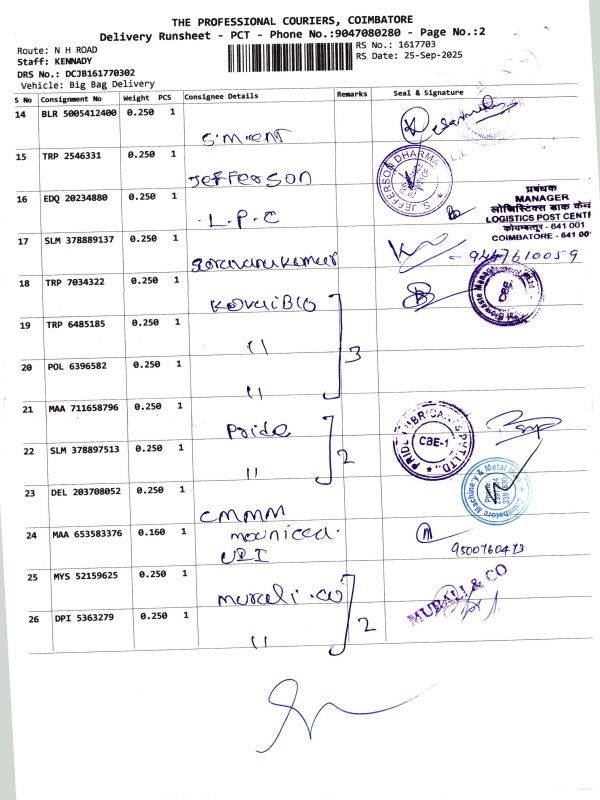 THE PROFESSIONAL COURIERS, COIMBATORE
Delivery Runsheet - PCT - Phone No.:9047080280 - Page No.:2
Route: N H ROAD
Staff: KENNADY
DRS No.: DCJB161770302
Vehicle: Big Bag Delivery
RS No.: 1617703
RS Date: 25-Sep-2025
S No Consignment No Weight PCS Consignee Details Remarks Seal & Signature
14 BLR 5005412400 0.250 1
15 TRP 2546331 0.250 1 Jefferson
S. JEFFERSON DHARMA
16 EDQ 20234880 0.250 1 L.P.C
प्रबंधक
MANAGER
लोजिस्टिक्स डाक केन्द
LOGISTICS POST CENT
कोयम्बत्तूर - 641 001
COIMBATORE - 641 00
17 SLM 378889137 0.250 1
18 TRP 7034322 0.250 1 KovaiBio
19 TRP 6485185 0.250 1 11
3
20 POL 6396582 0.250 1 11
21 MAA 711658796 0.250 1 Pride
PRIDE LUBRICANTS PVT.LTD.
CBE-1
22 SLM 378897513 0.250 1 11
2
23 DEL 203708052 0.250 1 CMMM
Coimbatore Machinery & Metal
24 MAA 653583376 0.160 1
25 MYS 52159625 0.250 1 murali.co
MURALI & CO
26 DPI 5363279 0.250 1 11
2